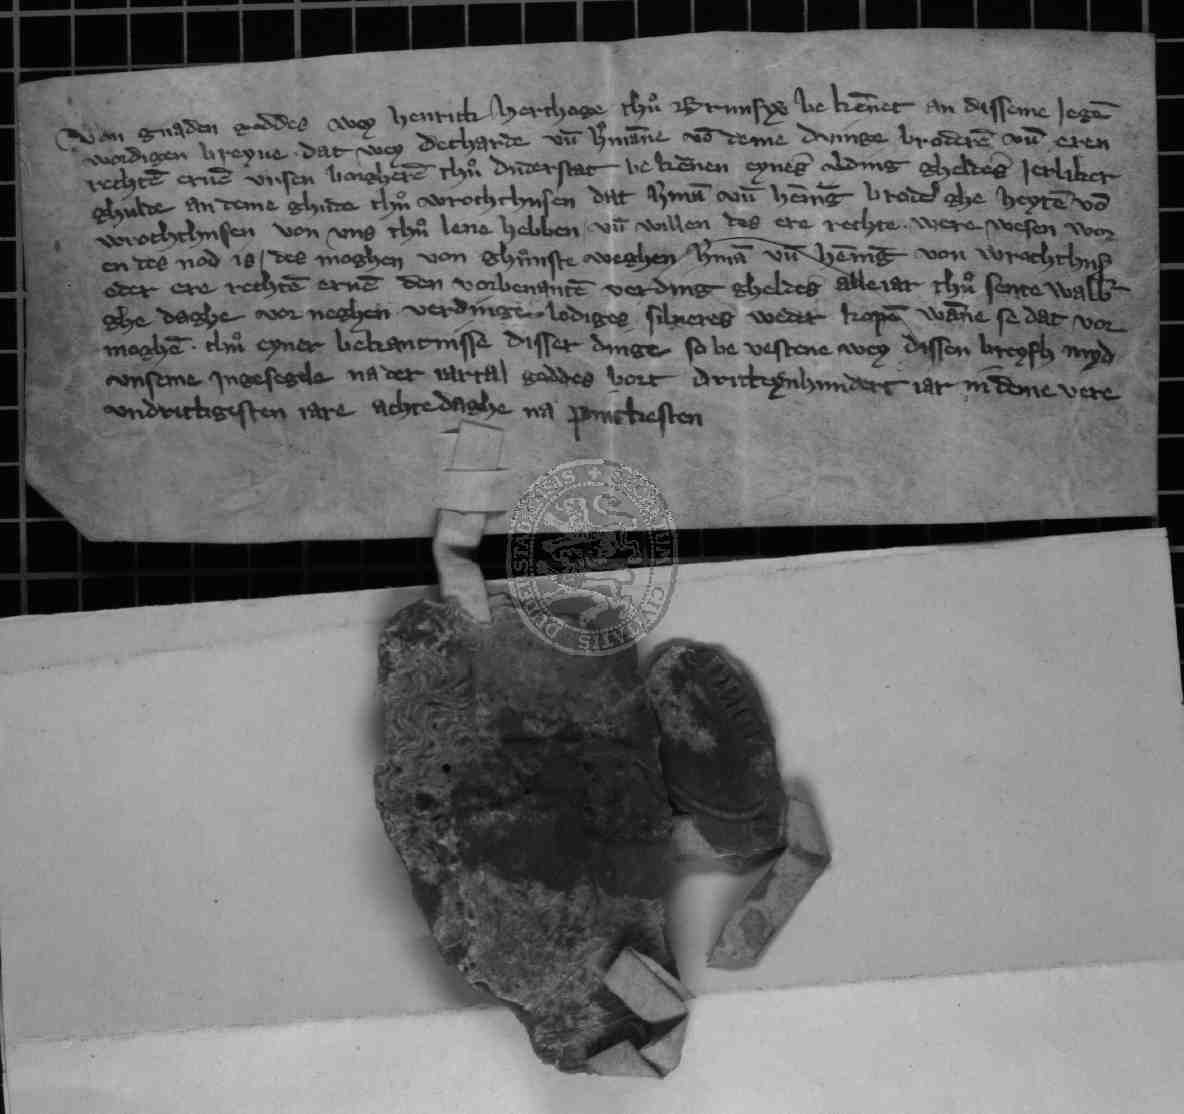 Van gnaden goddes wey henrich herthoge thuͦ Brunswͦ bekēnet an disseme Jegē
wordigen breyue dat wey Detharde vn̄ h̓māne vō deme dringe broderē vn̄ eren
rechtē eruē vnsen borgherē thuͦ duderstat be kēnen eynes ding gheldes Jerliker
ghulde an deme ghude thuͦ wrochthusen dat h̓mā vn̄ hēnig brod̓ ghe heytē vō
wrochthusen von vns thuͦ lene hebben vn̄ willen des ere rechte were wesen wor
en des nod is des moghen von ghuͦnste weghen h̓mā vn̄ hēnig von wrochthus̄
oder ere rechtē eruē den vorbenantē verding gheldes alle iar thuͦ sente walb̓
ghe daghe vor neghen verdinge lodiges silueres weder kopē wāne se dat vor
moghē thuͦ eyner bekantnisse disser dinge so be vestene wey dissen breyfh myd
vnseme Jngesegele na der iartal goddes bort dritteynhundert iar in deme vere
vndrittigesten iare achte daghe na pinckesten
SIGILLUM CIVITATIS DUDERSTADENSIS